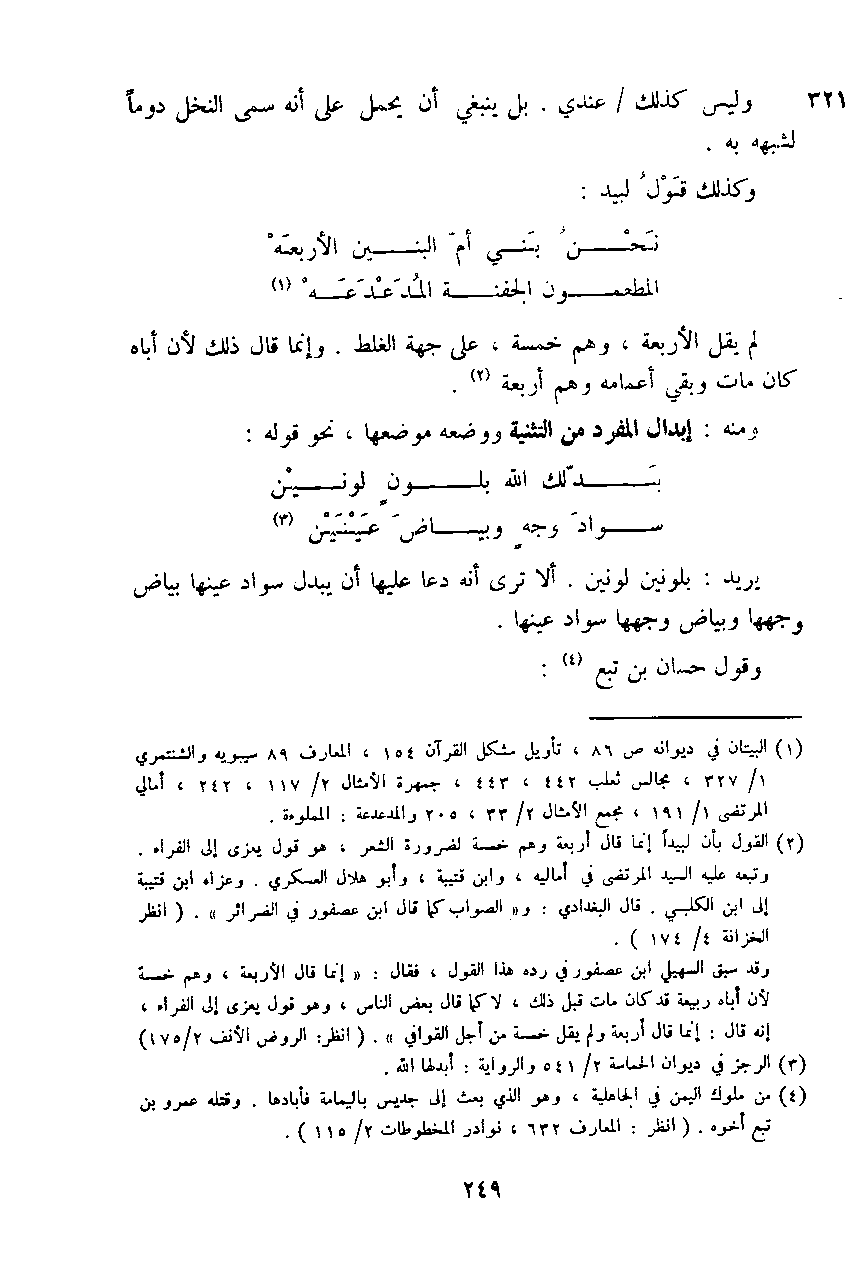 ٣٢١ وليس كذلك / عندي . بل ينبغي أن يحمل على أنه سمى النخل دوماً
لشبهه به .
وكذلك قَوْلُ لبيد :
نَحْنُ بَنَي أمّ البنين الأربعَهْ
المطعمون الجفنة المُدَعْدَعَهْ (١)
لم يقل الأربعة ، وهم خمسة ، على جهة الغلط . وإنما قال ذلك لأن أباه
كان مات وبقي أعمامه وهم أربعة (٢) .
ومنه : إبدال المفرد من التثنية ووضعه موضعها ، نحو قوله :
بَدّلك الله بلونٍ لونيْن
سوادَ وجهٍ وبياضَ عَيْنَيْن (٣)
يريد : بلونين لونين . ألا ترى أنه دعا عليها أن يبدل سواد عينها بياض
وجهها وبياض وجهها سواد عينها .
وقول حسان بن تبع (٤) :
(١) البيتان في ديوانه ص ٨٦ ، تأويل مشكل القرآن ١٥٤ ، المعارف ٨٩ سيبويه والشنتمري
١/ ٣٢٧ ، مجالس ثعلب ٤٤٢ ، ٤٤٣ ، جمهرة الأمثال ٢/ ١١٧ ، ٢٤٢ ، أمالي
المرتضى ١/ ١٩١ ، مجمع الأمثال ٢/ ٣٣ ، ٢٠٥ والمدعدعة : المملوءة .
(٢) القول بأن لبيداً إنما قال أربعة وهم خمسة لضرورة الشعر ، هو قول يعزى إلى الفراء .
وتبعه عليه السيد المرتضى في أماليه ، وابن قتيبة ، وأبو هلال العسكري . وعزاه ابن قتيبة
إلى ابن الكلبي . قال البغدادي : و« الصواب كما قال ابن عصفور في الضرائر » . ( انظر
الخزانة ٤/ ١٧٤ ) .
وقد سبق السهيلي ابن عصفور في رده هذا القول ، فقال : « إنما قال الأربعة ، وهم خمسة
لأن أباه ربيعة قد كان مات قبل ذلك ، لا كما قال بعض الناس ، وهو قول يعزى إلى الفراء ،
إنه قال : إنما قال أربعة ولم يقل خمسة من أجل القوافي » . ( انظر: الروض الأنف ١٧٥/٢)
(٣) الرجز في ديوان الحماسة ٢/ ٥٤١ والرواية : أبدلها الله .
(٤) من ملوك اليمن في الجاهلية ، وهو الذي بعث إلى جديس باليمامة فأبادها . وقتله عمرو بن
تبع أخوه . ( انظر : المعارف ٦٣٢ ، نوادر المخطوطات ٢/ ١١٥ ) .
٢٤٩